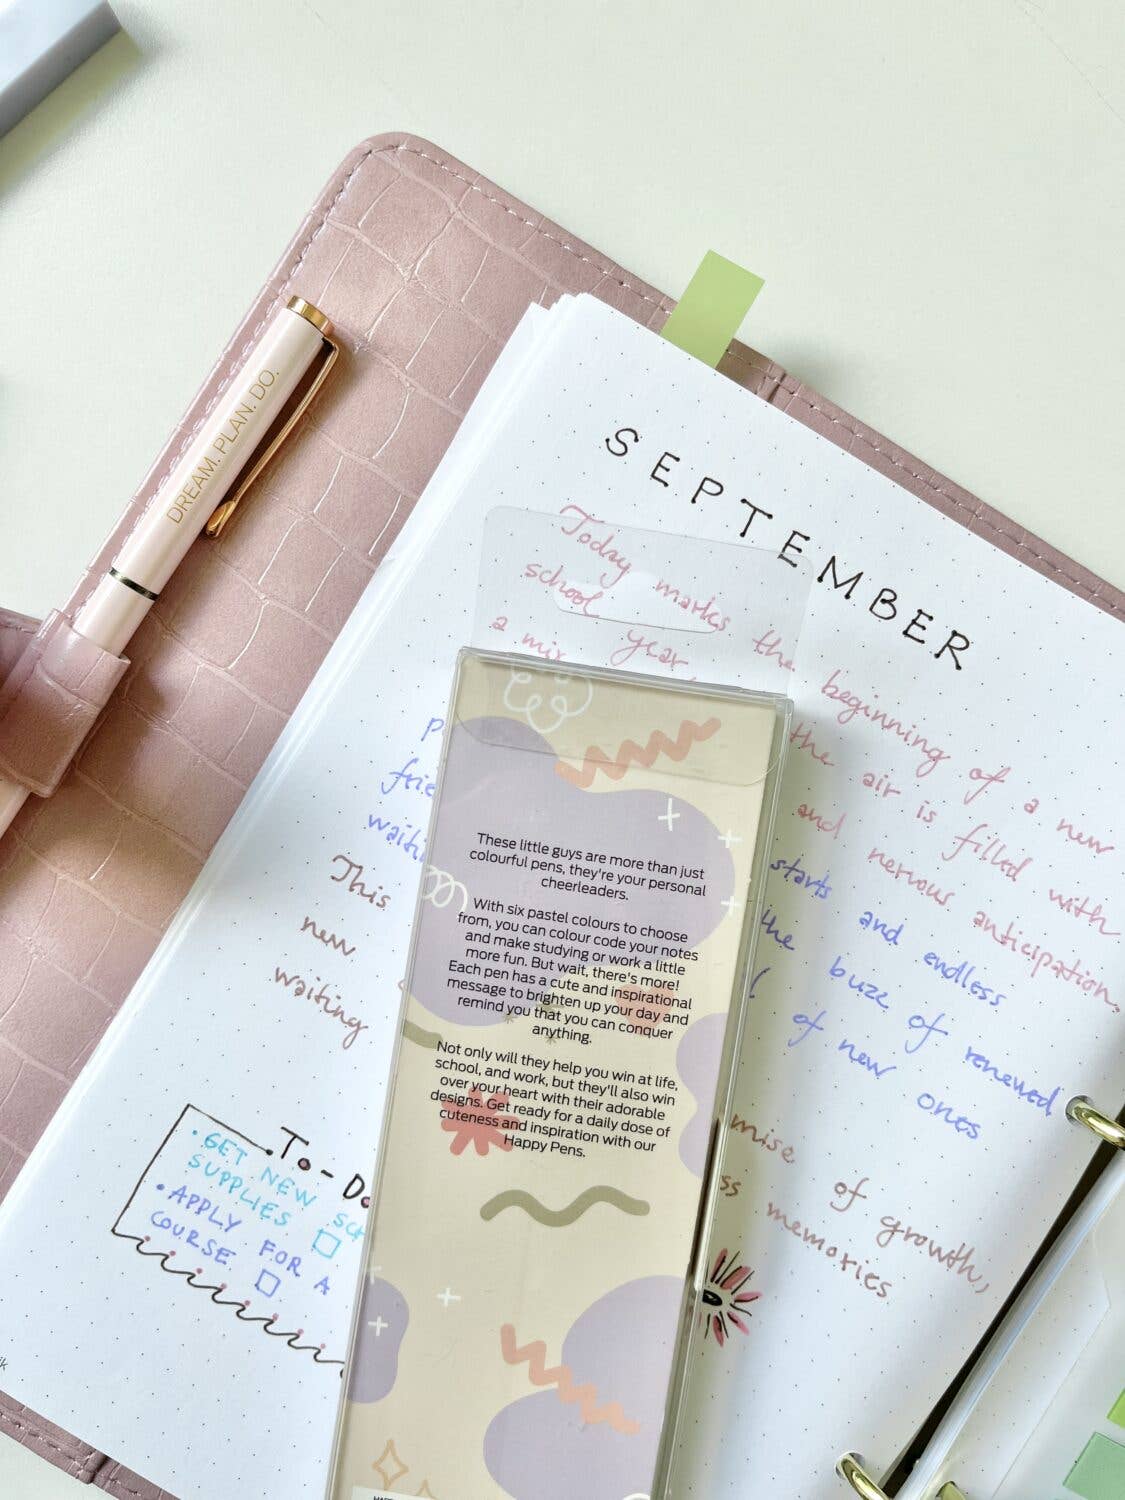 DREAM. PLAN. DO.
SEPTEMBER
Today marks the beginning of a new
school year the air is filled with
a mix and nervous anticipation.
starts and endless
the buzz of renewed
waiting of new ones
This mise of growth,
new memories
waiting
These little guys are more than just
colourful pens, they're your personal
cheerleaders.
With six pastel colours to choose
from, you can colour code your notes
and make studying or work a little
more fun. But wait, there's more!
Each pen has a cute and inspirational
message to brighten up your day and
remind you that you can conquer
anything.
Not only will they help you win at life,
school, and work, but they'll also win
over your heart with their adorable
designs. Get ready for a daily dose of
cuteness and inspiration with our
Happy Pens.
To-Do
• GET NEW SCH
SUPPLIES
• APPLY FOR A
COURSE